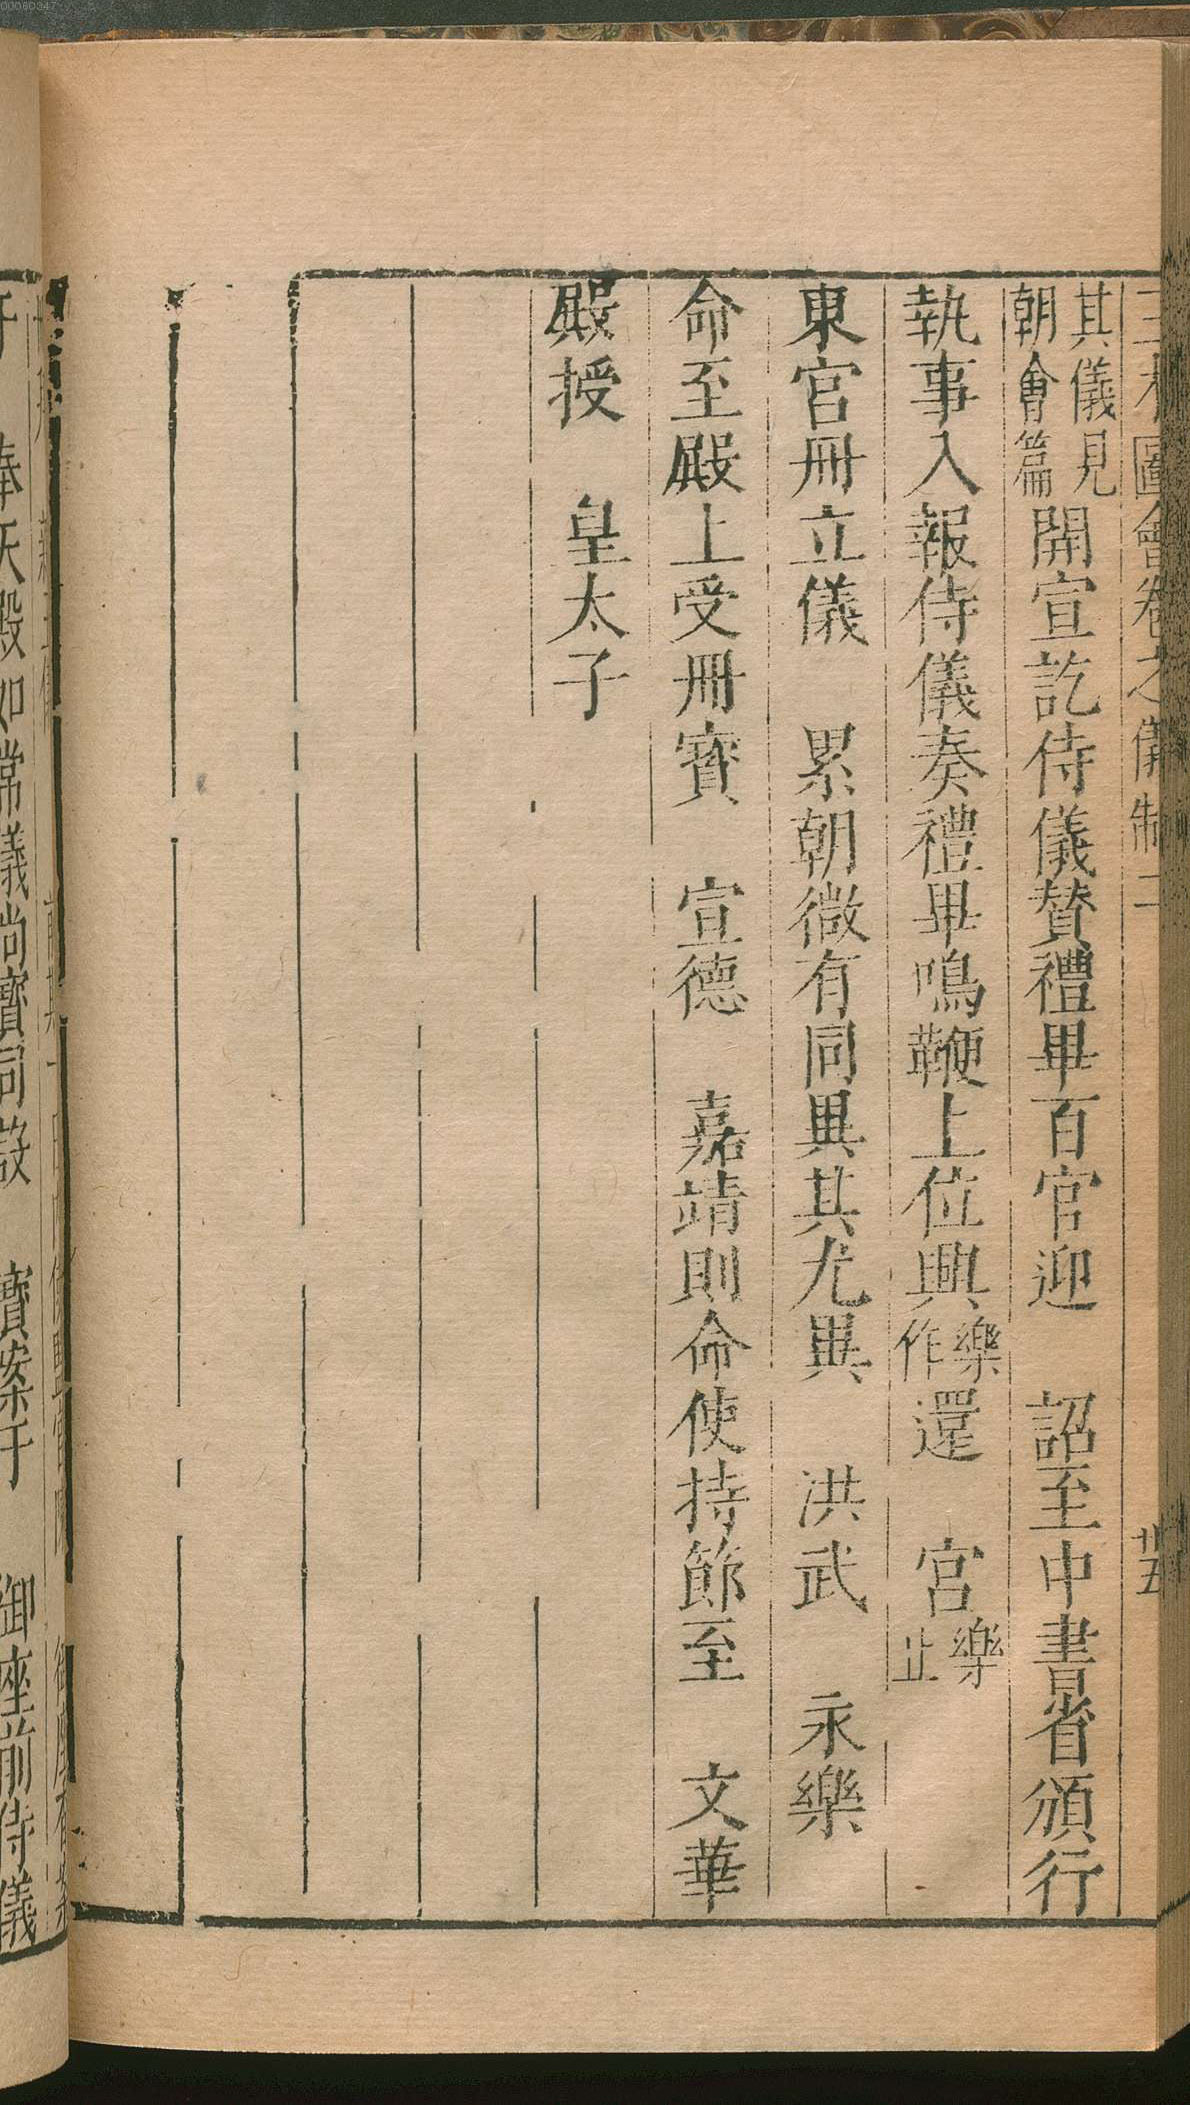 00080347
三才圖會卷之儀制二 廿五
其儀見
朝會篇
開宣訖侍儀贊禮畢百官迎 詔至中書省頒行
執事入報侍儀奏禮畢鳴鞭上位興樂作還 宮樂止
東宮冊立儀 累朝微有同異其尤異 洪武 永樂
命至殿上受冊寶 宣德 嘉靖則命使持節至 文華
殿授 皇太子
奉天殿如常儀尚寶司設 寶案于 御座前侍儀